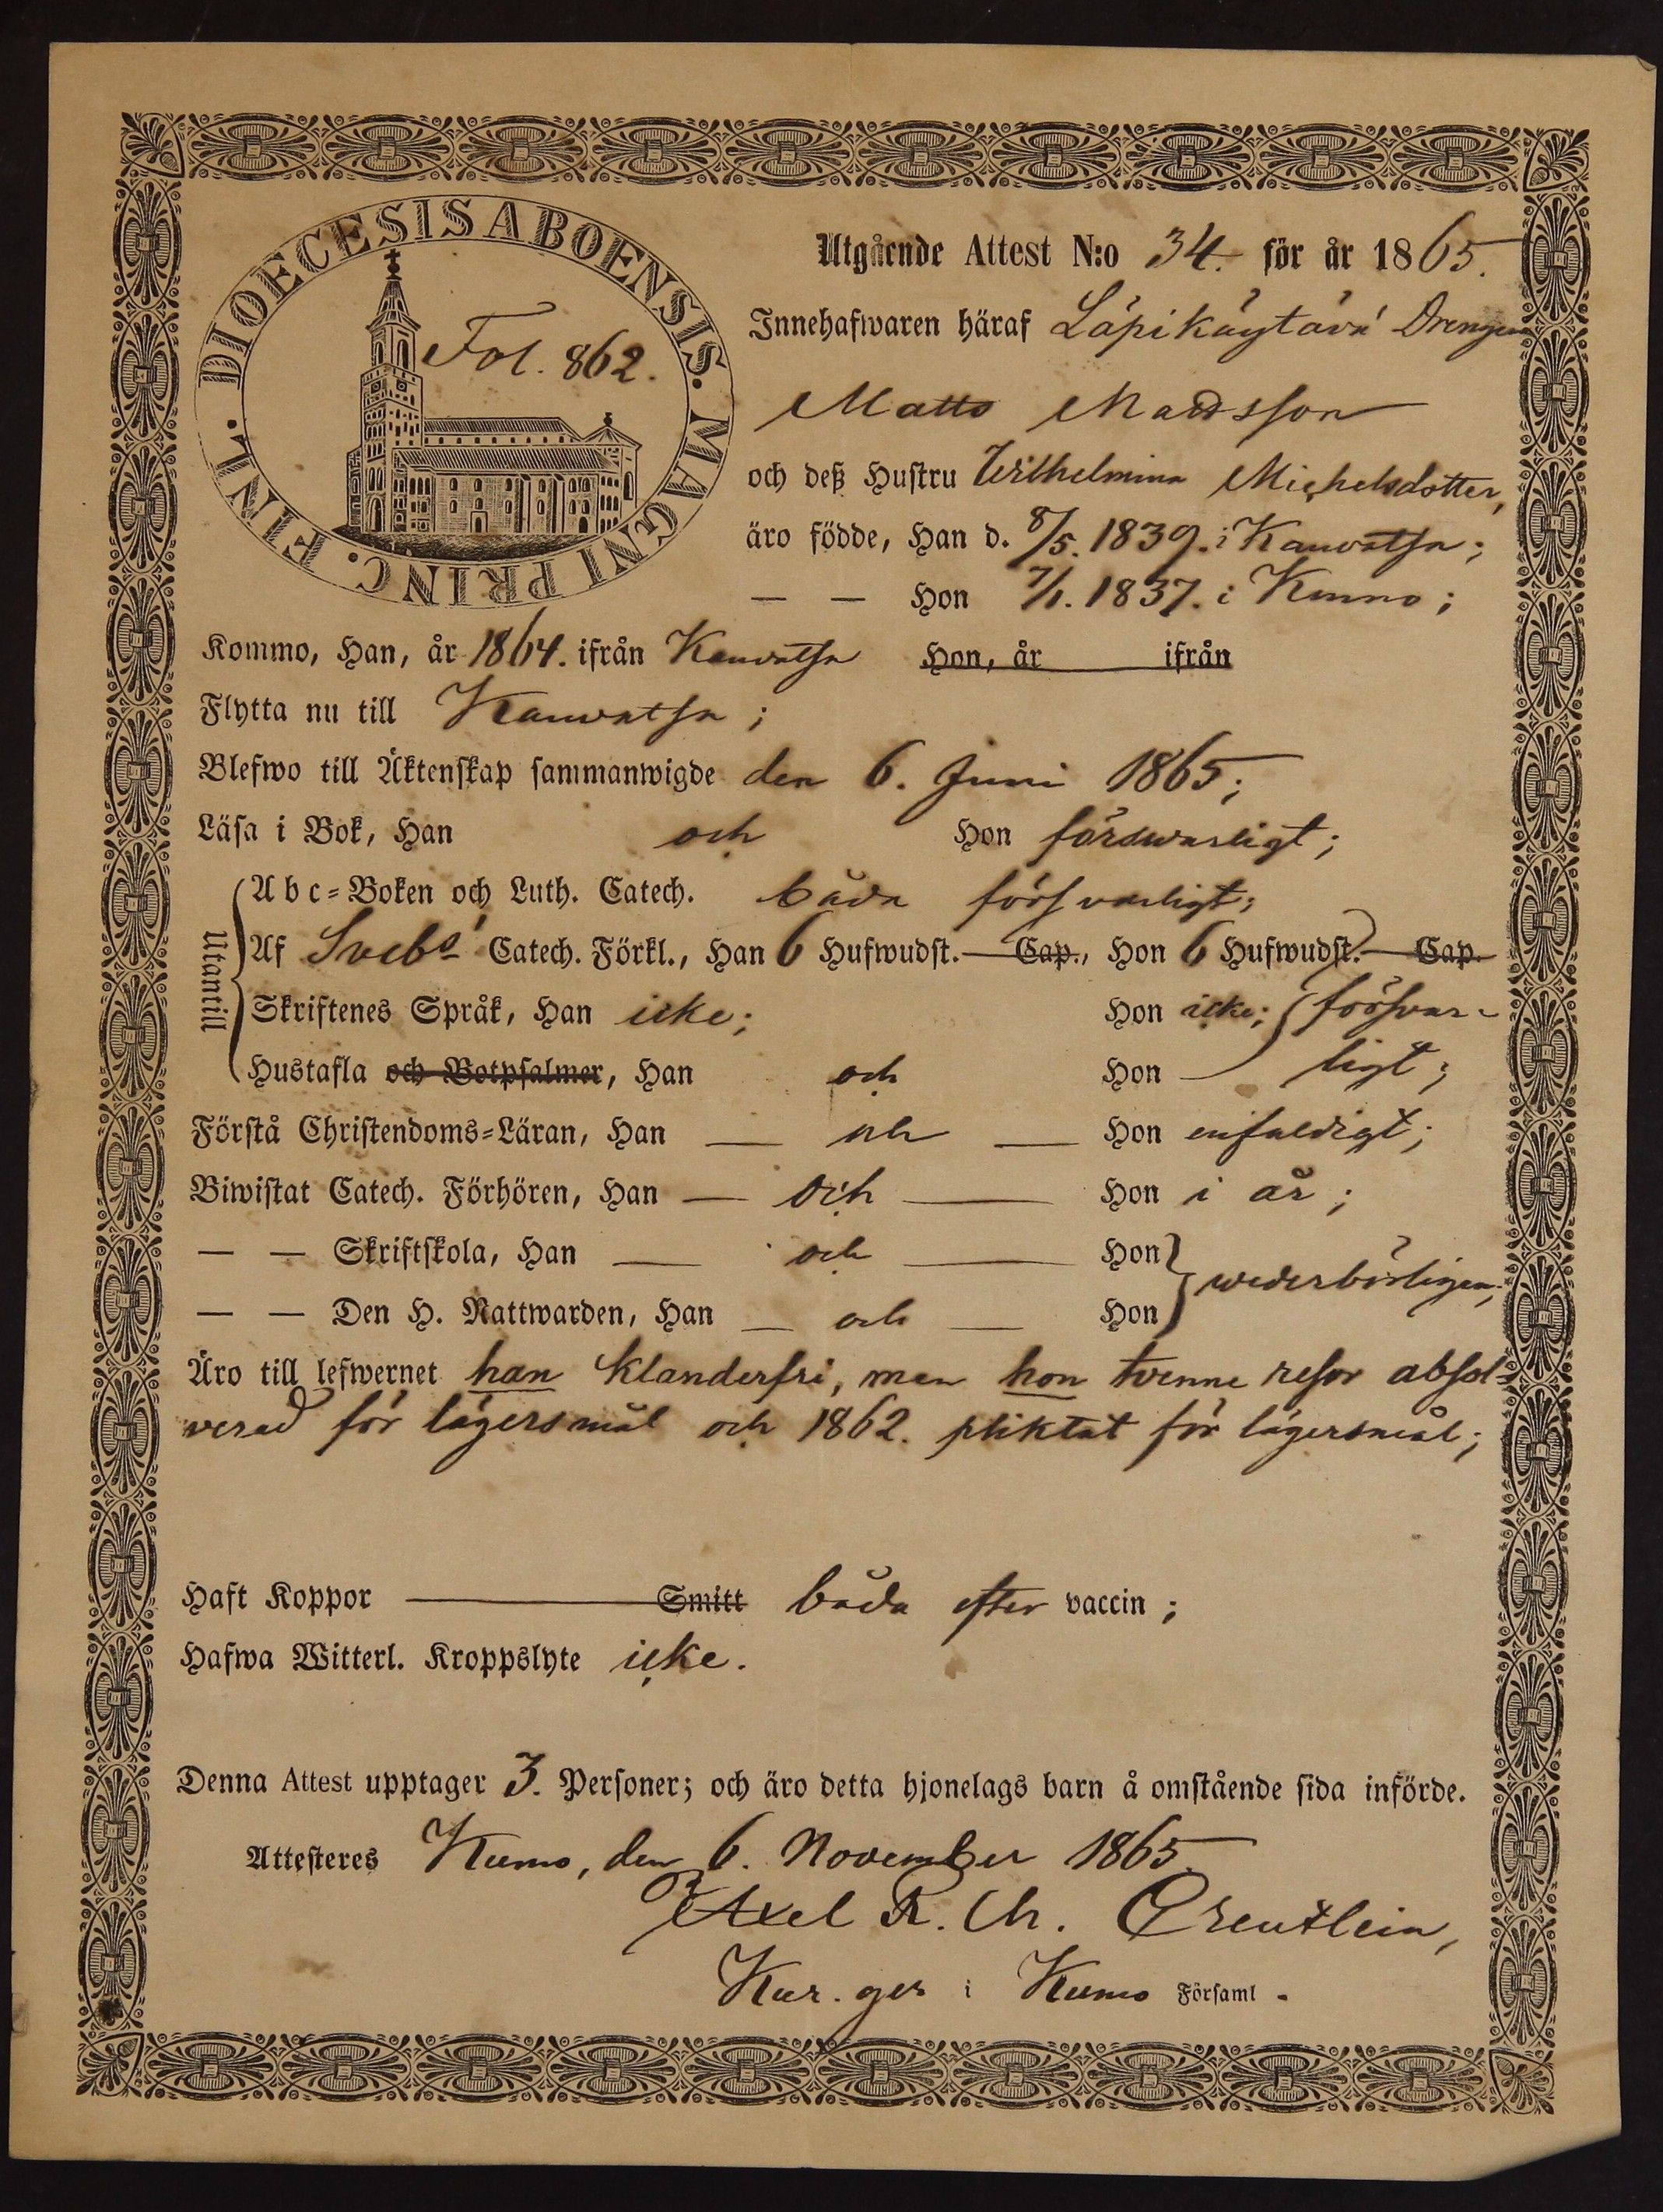 DIOECESIS ABOENSIS. MAGNI PRINC. FINL.
Fol. 862.
Utgående Attest N:o 34. för år 1865.
Innehafwaren häraf Läpikäytävä Drengen
Matts Mattsson
och deß Hustru Wilhelmina Michelsdotter,
äro födde, Han d. 8/5. 1839. i Kauvatsa;
— — Hon 7/1. 1837. i Kumo;
Kommo, Han, år 1864. ifrån Kauvatsa Hon, år ifrån
Flytta nu till Kauvatsa;
Blefwo till Äktenskap sammanwigde den 6. Juni 1865;
Läsa i Bok, Han och Hon försvarligt;
Utantill
Abc=Boken och Luth. Catech. båda försvarligt;
Af Sveb. Catech. Förkl., Han 6 Hufwudst. Cap., Hon 6 Hufwudst. Cap.
Skriftenes Språk, Han icke; Hon icke; försvar-
Hustafla och Botpsalmer, Han och Hon — ligt;
Förstå Christendoms=Läran, Han — och — Hon enfaldigt;
Biwistat Catech. Förhören, Han — och — Hon i år;
— — Skriftskola, Han — och — Hon
wederbörligen;
— — Den H. Nattwarden, Han — och — Hon
Äro till lefwernet han klanderfri, men hon tvenne resor absol-
verad för lägersmål och 1862. pliktat för lägersmål;
Haft Koppor — Smitt båda efter vaccin;
Hafwa Witterl. Kroppslyte icke.
Denna Attest upptager 3. Personer; och äro detta hjonelags barn å omstående sida införde.
Attesteres Kumo, den 6. November 1865.
Axel R. Ch. Creutlein,
Kyr. ger i Kumo Församl.